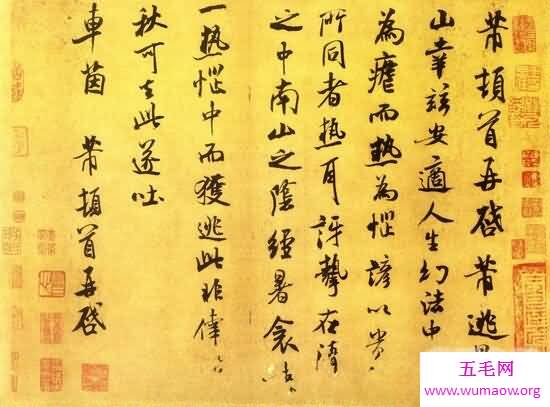 芾頓首再啓芾逃
山幸兹安適人生幻法中
為瘧而熱為惱諺以貴
所同者熱耳訝摯在清
之中南山之陰經暑衾
一熱惱中而獲逃此非偉
秋可去此遂吐
車茵 芾頓首再啓
五毛网
www.wumaow.org